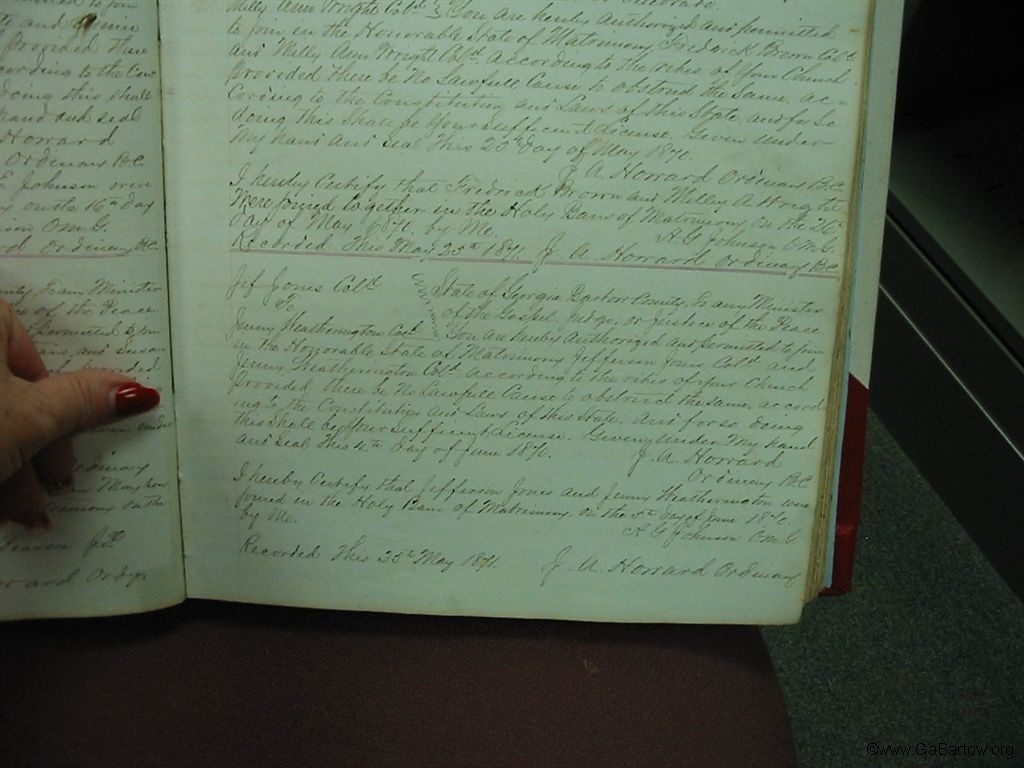 to join
and
Provided there
ording to the Con
doing this shall
hand and seal
Howard
Ordinary B.C.
E Johnson were
on the 16th day
son O.M.G.
rd Ordinary B.C.
unty, To any Minister
of the Peace
permitted to join
and Susan
under
dinary
on the
J.P.
ward Ordy.
Milly Ann Wright Cold. } You are hereby Authorized and permitted
to join in the Honorable State of Matrimony Fredrick Brown Cold.
and Milly Ann Wright Cold. according to the rites of Your Church
Provided there be No Lawfull Cause to obstruct the Same, ac-
cording to the Constitution and Laws of this State, and for So
doing this Shall be Your Sufficient License. Given Under
My hand and Seal This 25th Day of May 1870.
J. A. Howard Ordinary B.C.
I hereby Certify that Fredrick Brown and Milly A Wright
Were joined together in the Holy Bans of Matrimony on the 26th
day of May 1870. by Me.
A G Johnson O.M.G.
Recorded This May 25th 1871. J. A. Howard Ordinary B.C.
Jef Jones Cold.
To
Jenny Heatherington Cold.
State of Georgia Bartow County, To any Minister
of the Gospel, Judge, or Justice of the Peace
You are hereby Authorized and permitted to join
in the Honorable State of Matrimony Jefferson Jones Cold. and
Jenny Heatherington Cold. according to the rites of your Church
Provided there be No Lawfull Cause to obstruct the same, accord
ing to the Constitution and Laws of this State. And for so doing
this Shall be Your Sufficient License. Giving Under My hand
and Seal this 4th Day of June 1870.
J. A. Howard
Ordinary B.C.
I hereby Certify that Jefferson Jones and Jenny Heatherington were
joined in the Holy Bans of Matrimony, on the day of June 1870
by Me.
A G Johnson O.M.G.
Recorded This 25th May 1871. J. A. Howard Ordinary
©www.GaBartow.org